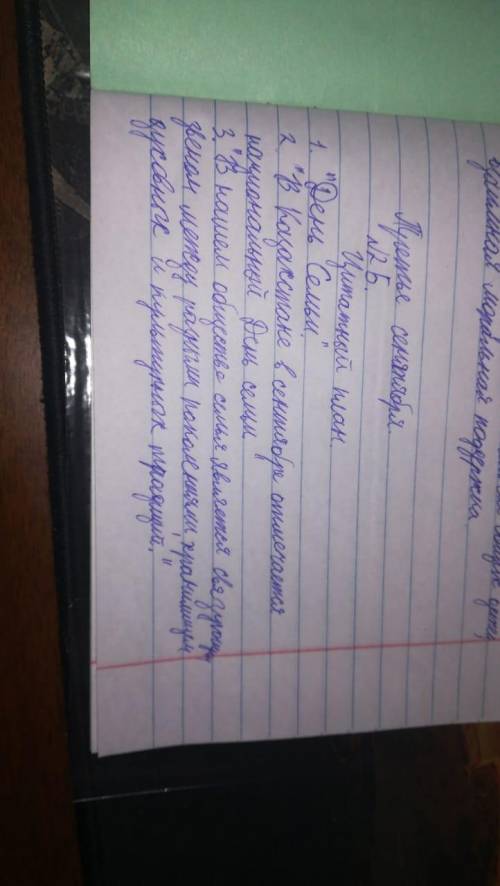 поддержка.
Третье сентября.
№ 5.
Цитатный план.
1. "День Семьи".
2. "В Казахстане в сентябре отмечается
национальный День семьи
3. "В нашем обществе семья является связующим
звеном между разными поколениями, хранилищем
духовных и культурных традиций."